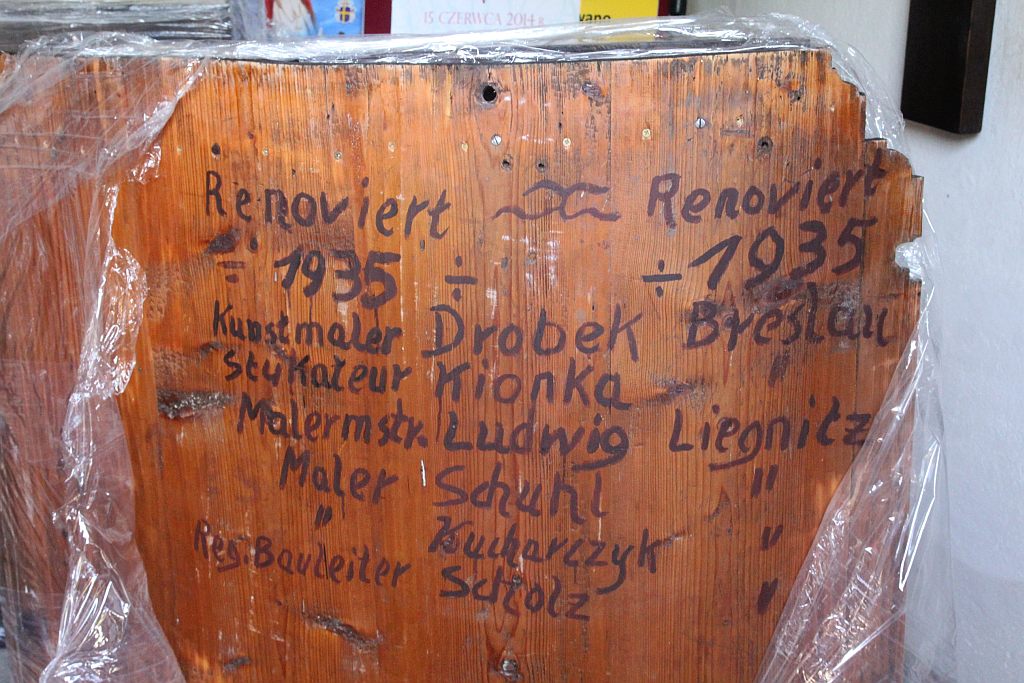 15 CZERWCA 2014 R.
wano
Renoviert Renoviert
÷ 1935 ÷ ÷ 1935
Kunstmaler Drobek Breslau
Stukateur Kionka "
Malermstr. Ludwig Liegnitz
Maler Schuhl "
" Kucharczyk "
Reg. Bauleiter Scholz "